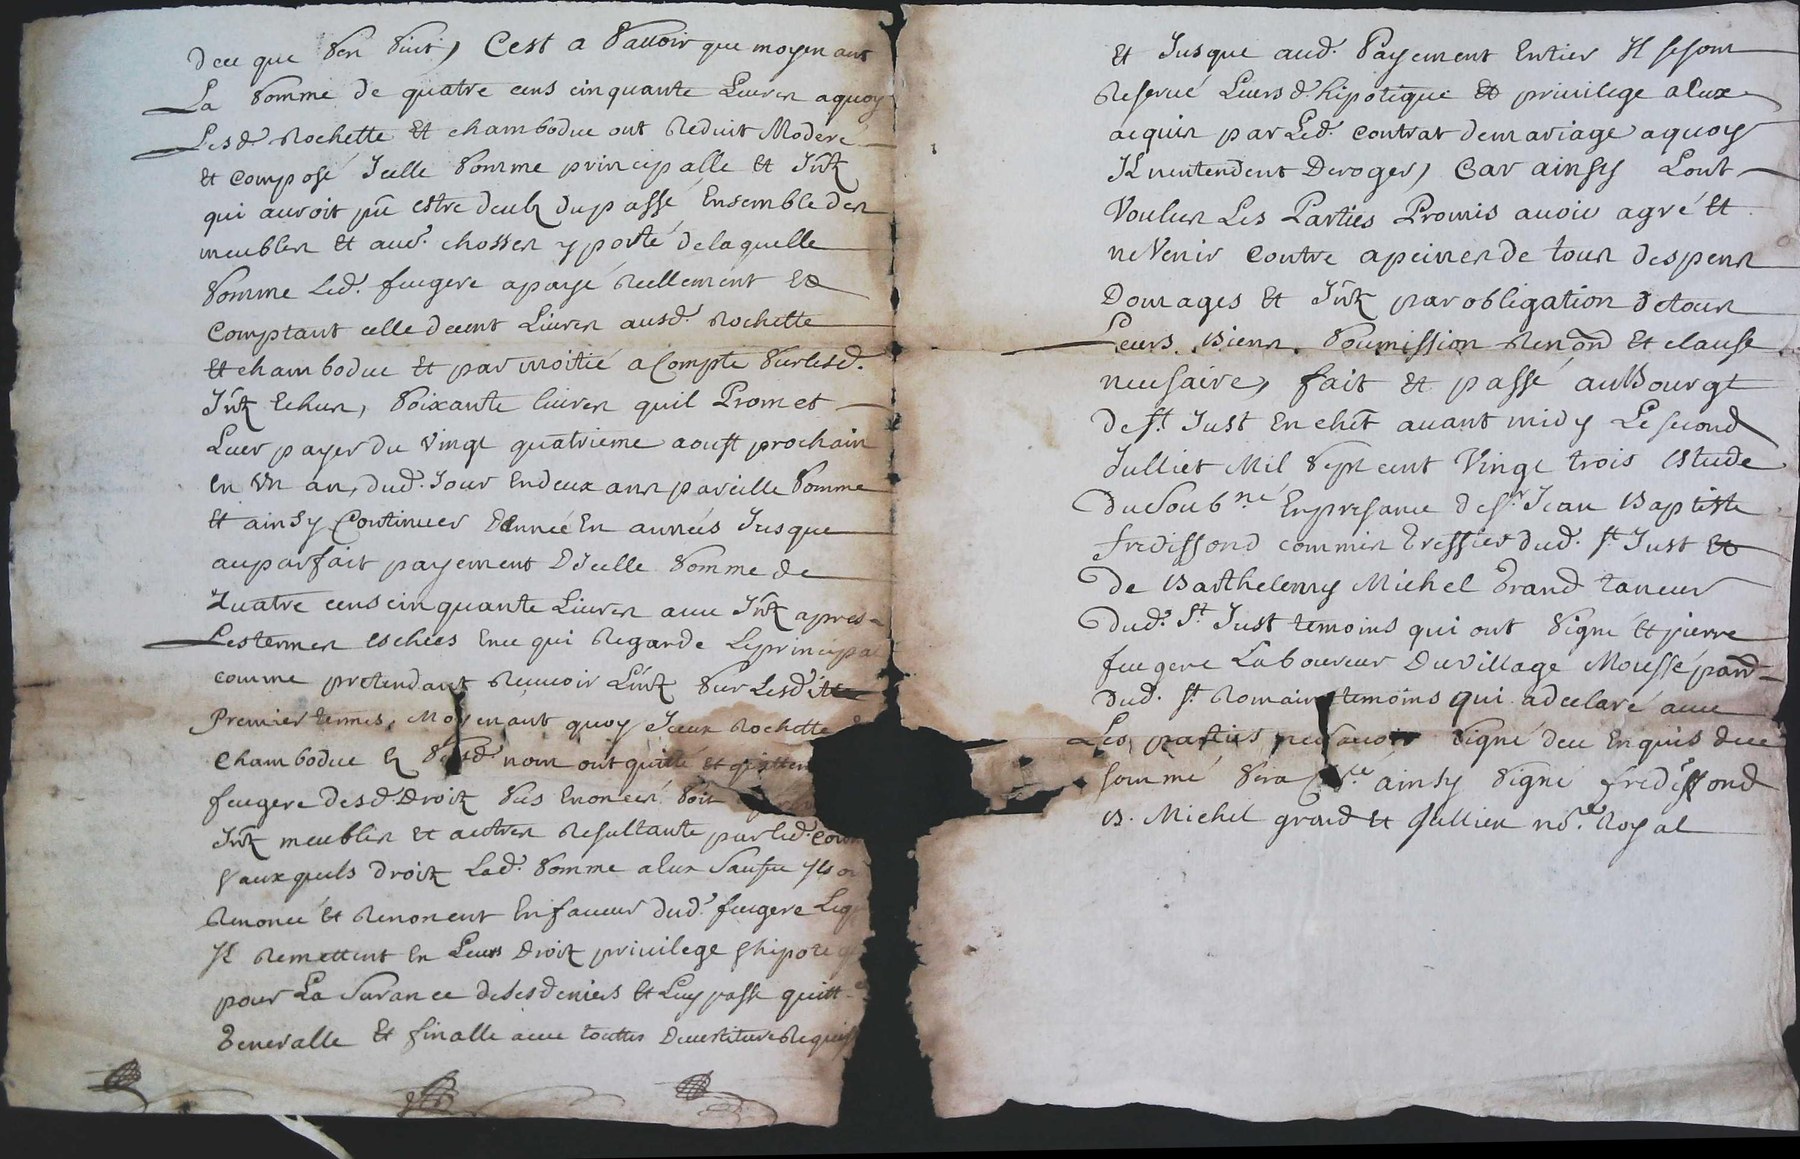 dece que sen suit, Cest a sauoir que moyen ant
La somme de quatre cens cinquante Liures aquoy
Lesd. Rochette et chambodue ont Reduit Moderé
et composé Icelle somme principalle et Intz
qui auroit pu estre deubz du passé Ensemble des
meubles et aud. chosses y porté delaquelle
somme Led. feugere a payé Reellement et
Comptant celle decent Liures ausd. Rochette
et chambodue et par moitié a Compte surlesd.
Intz Echus, soixante liures quil Promet
Luer payer du vingt quatrieme aoust prochain
en un an, dud. Jour Endeux ans pareille somme
et ainsy Continuer Dannéé En annéés Jusque
auparfait payement Dicelle somme de
quatre cens cinquante Liures auec Intz apres
Lestermes eschees Ence qui Regarde Leprincipal
comme pretendant Receuoir Lintz sur Lesd.
Premier termes, Moyenant quoy Iceux Rochette
Chambodue nom ont quitté et quittent
feugere desd. Droitz sus Enonces soit
Intz meubles et autres Resultants par led. con
sauxquels droitz Lad. somme a leur Ils on
Renoncé et Renoncent En faueur dud. feugere
Il Remettent en Leurs Droitz priuilege hipoteq
pour La Surance desesdeniers et Luy passe quitt
generalle et finalle auec touttes Deuestiture Requis
et Jusque aud. Payement Entier Il se sont
Reserué Luers d. hipoteque et priuilege aLeux
acquis par Led. contrat demariage aquoy
Il nentendent Deroger, Car ainsy Lont
Voulus Les Parties Promis auoir agré et
ne Venir Contre apeines de tous despens
Domages et Intz par obligation detous
Leurs Biens, soumission Renond et clause
necesaire, fait et passé auBourgt
de st. Just En chet auant midy Le second
Julliet Mil sept cent Vingt trois Estude
Dusoub.né En presance de sr. Jean Baptiste
fredissond commis greffier dud. st. Just et
de Barthelemy Michel grand taneur
Dud. st. Just temoins qui ont signé et pierre
feugere Laboureur Du village Moussé
Dud. st. Romain temoins qui a declaré auec
Les parties ne sauoir signé dece Enquis dece
sommé sera ainsy signé fredissond
B. Michel grand et Jullien no.re Royal